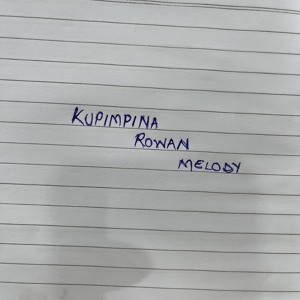 KUPIMPINA
ROWAN
MELODY